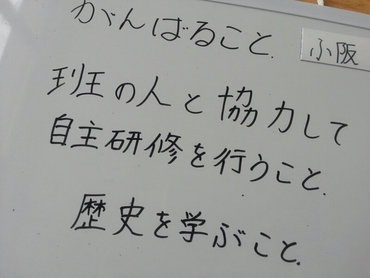 がんばること.
小阪
班の人と協力して
自主研修を行うこと.
歴史を学ぶこと.